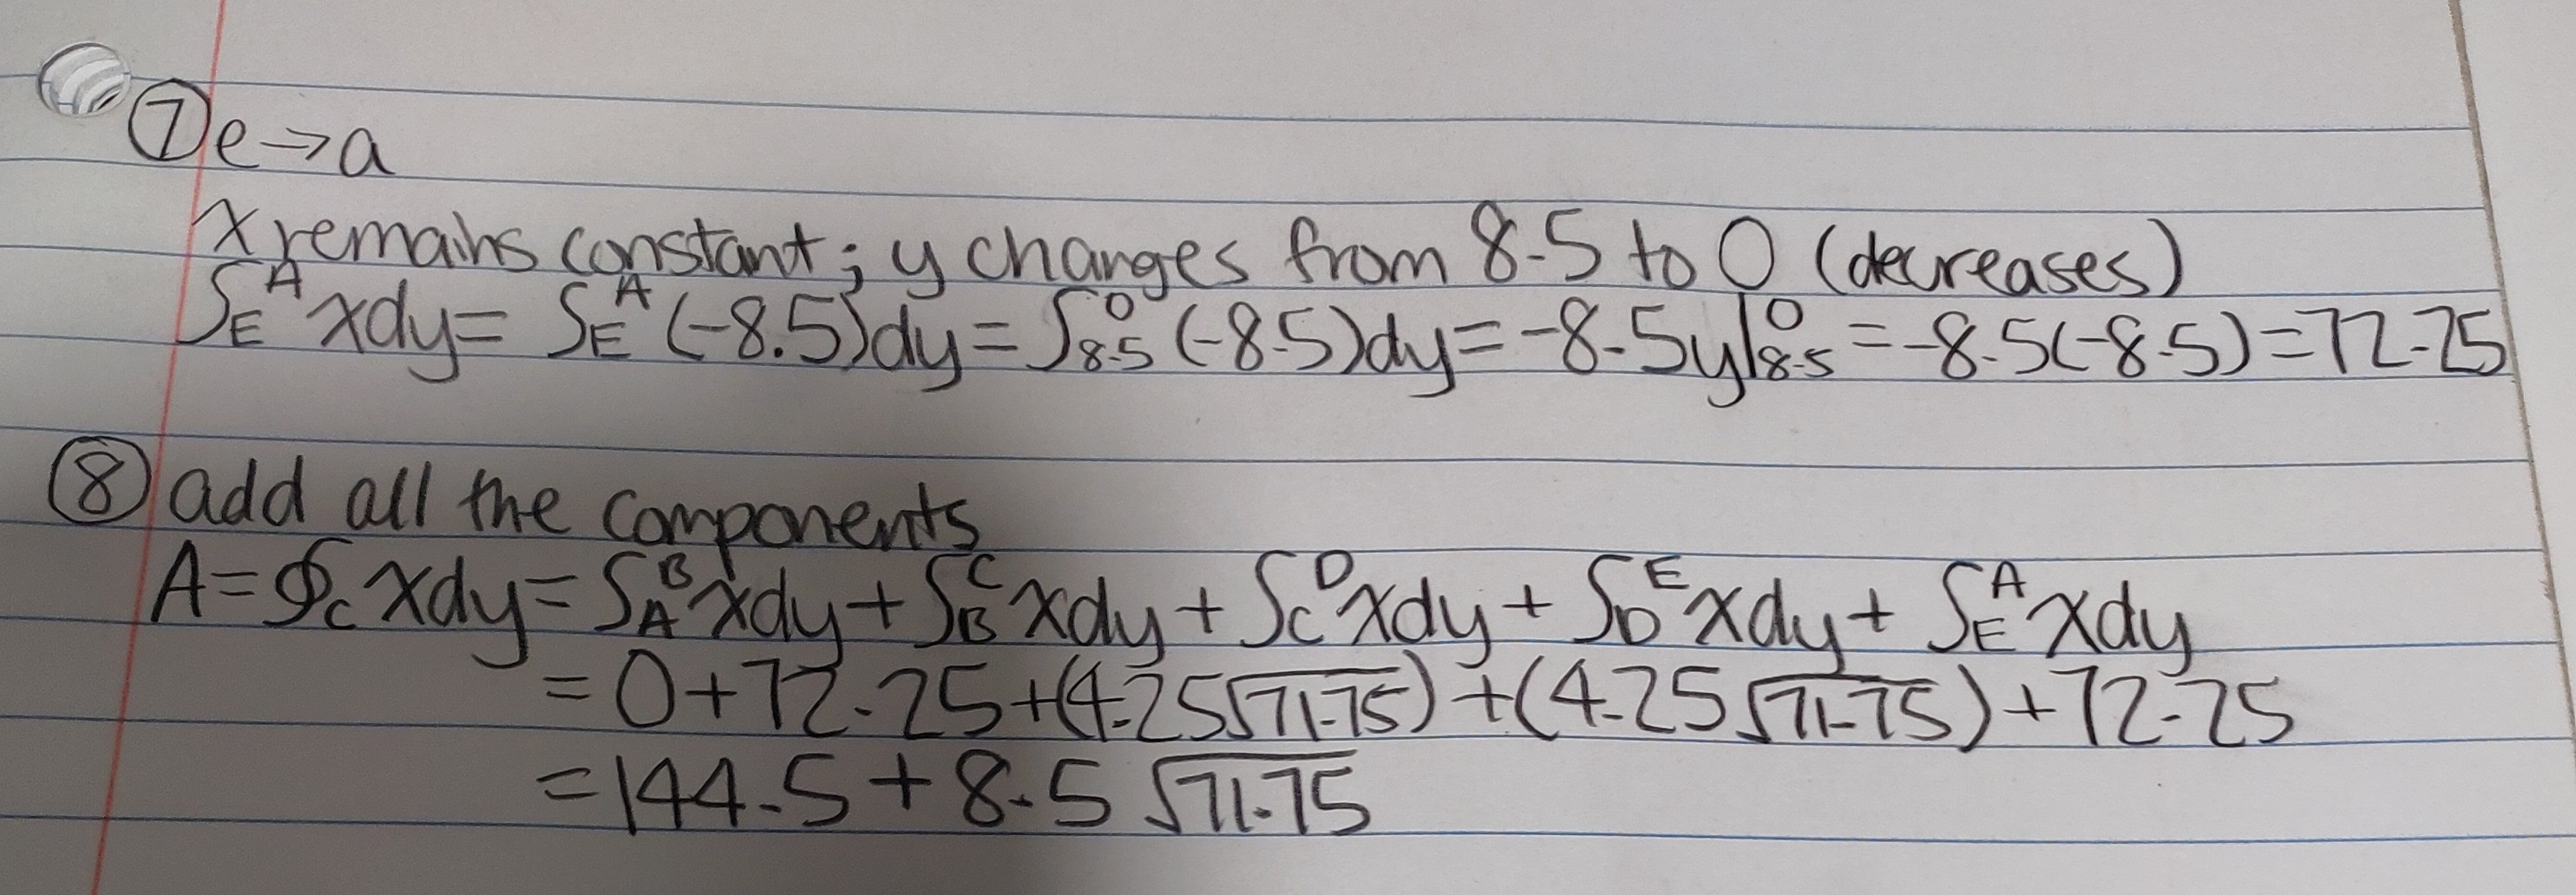 ⑦ e→a
x remains constant; y changes from 8.5 to 0 (decreases)
∫_E^A xdy = ∫_E^A (-8.5)dy = ∫_8.5^0 (-8.5)dy = -8.5y|_8.5^0 = -8.5(-8.5) = 72.25
⑧ add all the components
A = ∮_C xdy = ∫_A^B xdy + ∫_B^C xdy + ∫_C^D xdy + ∫_D^E xdy + ∫_E^A xdy
= 0 + 72.25 + (4.25√71.75) + (4.25√71.75) + 72.25
= 144.5 + 8.5√71.75